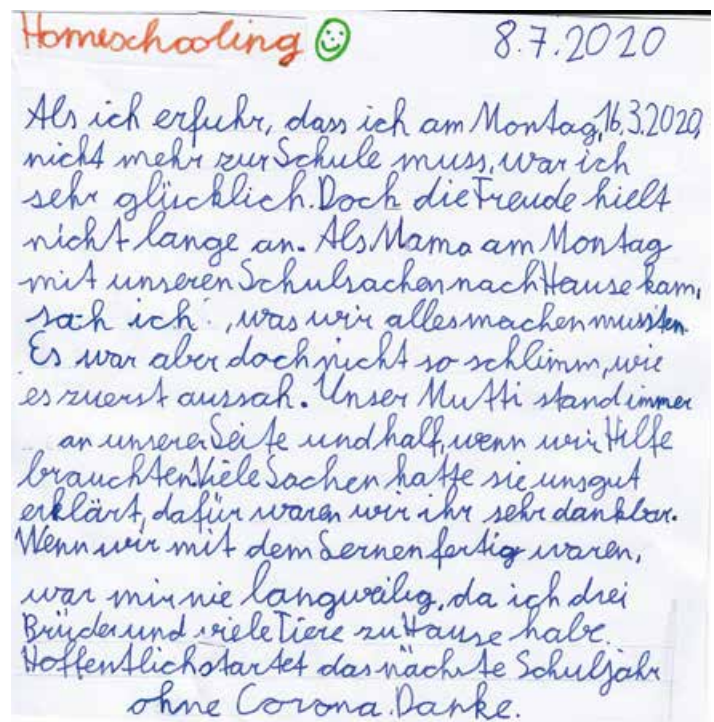 Homeschooling 8.7.2020
Als ich erfuhr, dass ich am Montag, 16.3.2020,
nicht mehr zur Schule muss, war ich
sehr glücklich. Doch die Freude hielt
nicht lange an. Als Mama am Montag
mit unseren Schulsachen nach Hause kam,
sah ich, was wir alles machen mussten.
Es war aber doch nicht so schlimm, wie
es zuerst aussah. Unser Mutti stand immer
an unserer Seite und half, wenn wir Hilfe
brauchten. Viele Sachen hatte sie uns gut
erklärt, dafür waren wir ihr sehr dankbar.
Wenn wir mit dem Lernen fertig waren,
war mir nie langweilig, da ich drei
Brüder und viele Tiere zu Hause habe.
Hoffentlich startet das nächste Schuljahr
ohne Corona. Danke.